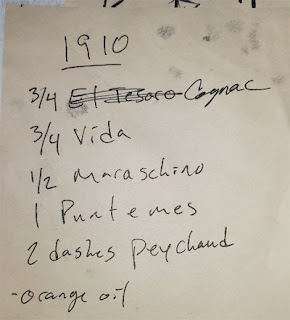 1910
3/4 El Tesoro Cognac
3/4 Vida
1/2 Maraschino
1 Puntemes
2 dashes Peychaud
-orange oil